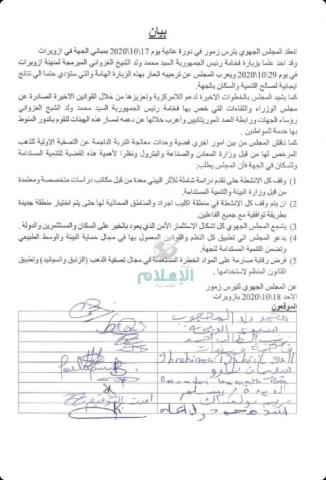 بيان
انعقد المجلس الجهوي بترس زمور في دورة عادية يوم 17\10\2020 بمباني الجهة في ازويرات
وقد اخذ علما بزيارة فخامة رئيس الجمهورية السيد محمد ولد الشيخ الغزواني المبرمجة لمدينة ازويرات
في يوم 29\10\2020 ويعرب المجلس عن ترحيبه الحار بهذه الزيارة الهامة والتي ستؤدي حتما الى نتائج
ايجابية لصالح التنمية والسكان بالجهة.
كما يشيد المجلس بالخطوات الاخيرة لدعم اللامركزية وتعزيزها من خلال القوانين الاخيرة الصادرة عن
مجلس الوزراء واللقاءات التي خص بها فخامة رئيس الجمهورية السيد محمد ولد الشيخ الغزواني
رؤساء الجهات ورابطة العمد الموريتانيين وأعرب خلالها عن دعمه لمسار هذه الهيئات لتقوم بالدور المنوط
بها خدمة للمواطنين.
كما ناقش المجلس من بين امور اخرى قضية وحدات معالجة التربة الناجمة عن التصفية الاولية للذهب
المرخص لها من قبل وزارة المعادن والصناعة والبترول ونظرا لأهمية هذه القضية للتنمية المستدامة
وللسكان في الجهة فان المجلس يطلب:
1) وقف كل الانشطة حتى تقدم دراسة شاملة للأثر البيئي معدة من قبل مكاتب دراسات متخصصة ومعتمدة
من قبل وزارة البيئة والتنمية المستدامة.
2) ان يتم وقف كل الانشطة في منطقة اكليب اجراد والمناطق المحاذية لها حتى يتم اختيار منطقة جديدة
بطريقة توافقية مع جميع الفاعلين.
3) يشجع المجلس الجهوي كل اشكال الاستثمار الآمن الذي يعود بالخير على السكان والمستثمرين والدولة.
4) يدعو المجلس الى تطبيق كل النظم والقوانين المعمول بها في مجال حماية البيئة والوسط الطبيعي
وتضمن التنمية المستدامة للجهة.
5) فرض رقابة صارمة على المواد الخطرة المستعملة في مجال تصفية الذهب (الزئبق والسيانيد) وتطبيق
القانون المنظم لاستخدامها.
الإعلام
عن المجلس الجهوي لتيرس زمور
الاحد 18\10\2020 بازويرات
الموقعون